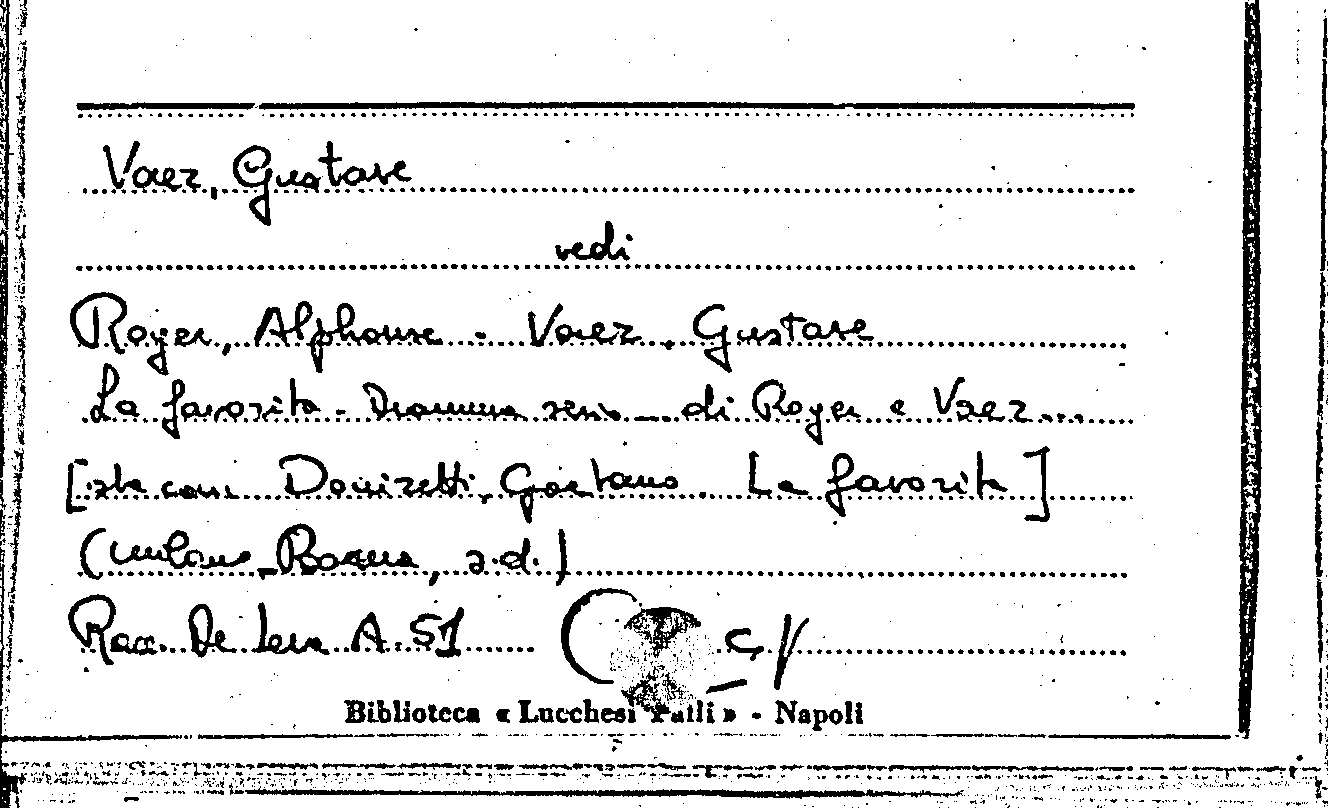 Vaez, Gustave
vedi
Royer, Alphonse - Vaez, Gustave
La favorita - Dramma serio di Royer e Vaez...
[sta con: Donizetti, Gaetano. La favorita]
(Milano-Roma, s.d.)
Racc. De Leva A. 51
Biblioteca « Lucchesi Palli » - Napoli